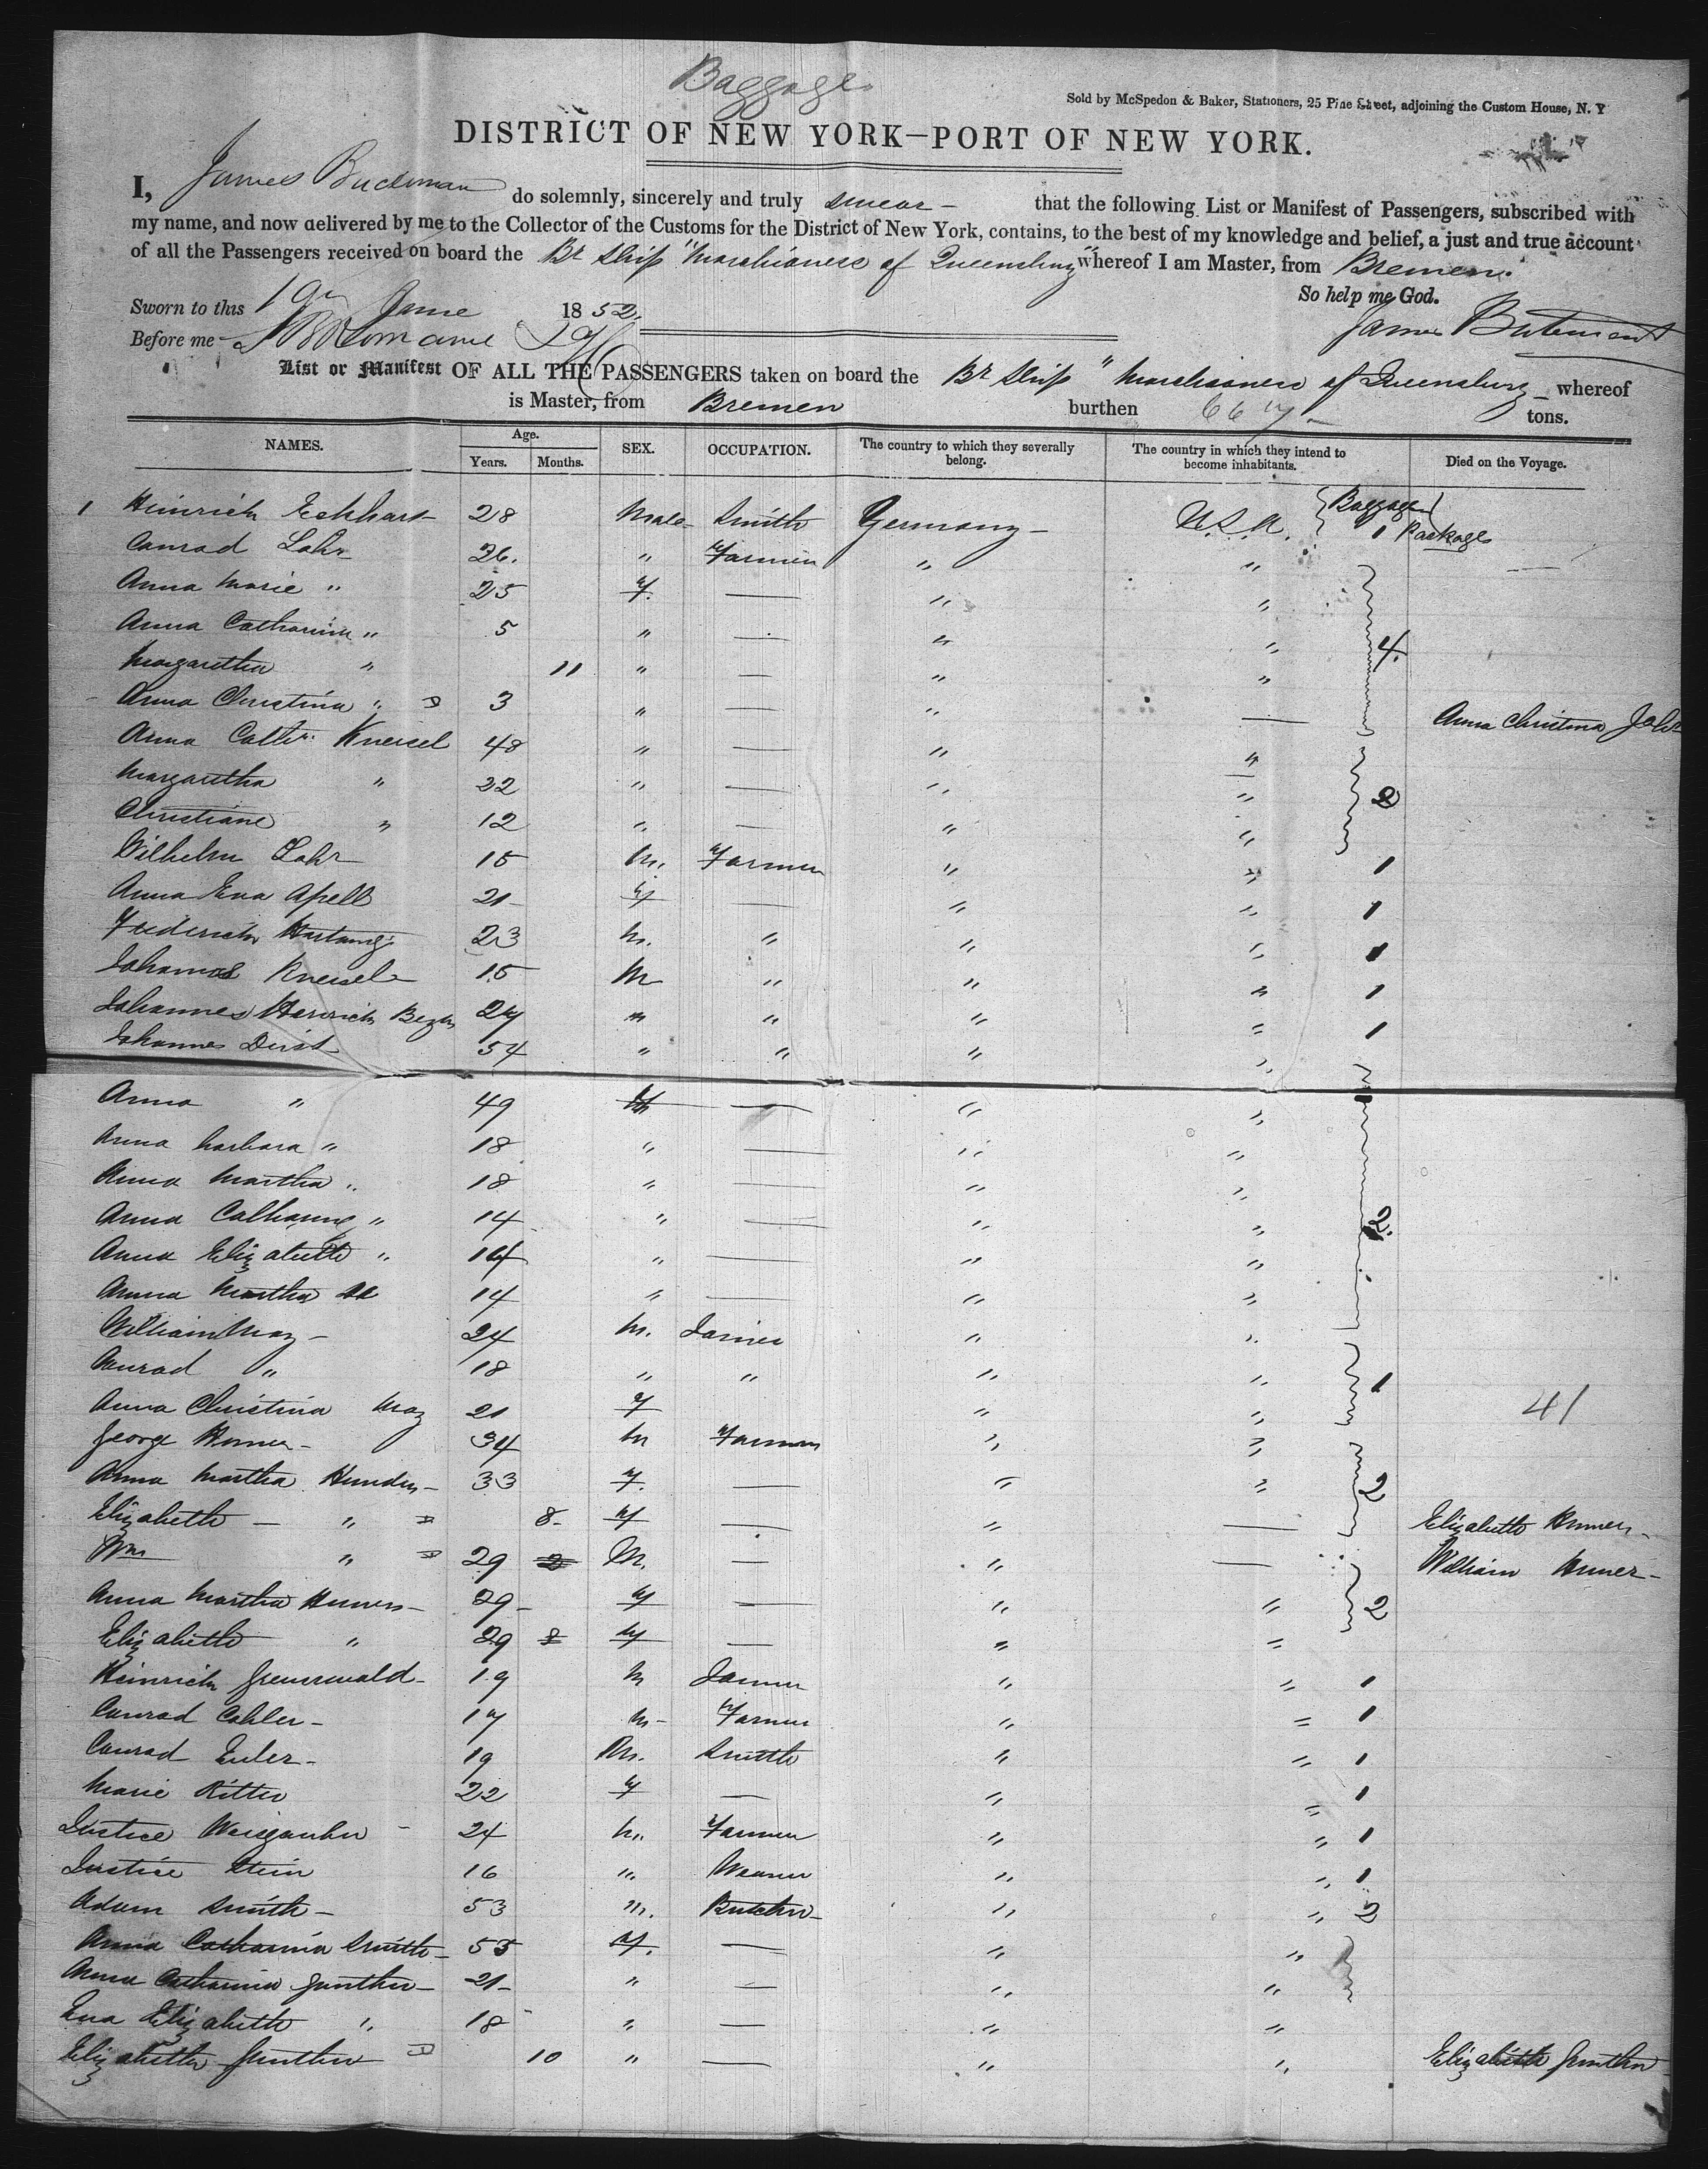 Baggage
Sold by McSpedon & Baker, Stationers, 25 Pine Street, adjoining the Custom House, N. Y
DISTRICT OF NEW YORK—PORT OF NEW YORK.
I, James do solemnly, sincerely and truly swear - that the following List or Manifest of Passengers, subscribed with
my name, and now delivered by me to the Collector of the Customs for the District of New York, contains, to the best of my knowledge and belief, a just and true account
of all the Passengers received on board the Br Ship "Marchioness of Queensbury" whereof I am Master, from Bremen.
So help me God.
Sworn to this 19 June 1852.
Before me
James
List or Manifest OF ALL THE PASSENGERS taken on board the Br Ship "Marchioness of Queensbury whereof
is Master, from Bremen burthen 667 - tons.
NAMES. Age. Years. Months. SEX. OCCUPATION. The country to which they severally belong. The country in which they intend to become inhabitants. Died on the Voyage.
1 Heinrich Eckhart 28 Male Smith Germany - U.S.A. {Baggage} 1 Package
Conrad Lohr 26. " Farmer " "
Anna Marie " 25 F. — " "
Anna Catharina " 5 " — " "
Margaretha " 11 " — " " 4.
Anna Christina " D 3 " — " — Anna Christina Lohr
Anna Cath: Kneisel 48 " — " "
Margaretha " 22 " — " " 2
Christiane " 12 " — " "
Wilhelm Lohr 15 M. Farmer " " 1
Anna Eva Apell 21 - F — " " 1
Frederich Hartung 23 M. " " " 1
Johannes Kneisel 15 M " " " 1
Johannes Heinrich 27 " " " " 1
Johannes Dirst 54 " " " "
Anna " 49 — " "
Anna Barbara " 18 " — " "
Anna Martha " 18 " — " "
Anna Catharine " 14 " — " " 2.
Anna Elizabeth " 14 " — " "
Anna Martha 14 " — " "
William May - 24 M. " "
Conrad " 18 " " " " 1
Anna Christina May 21 F " " 41
George - 34 M Farmer " "
Anna Martha - 33 F. — " " 2
Elizabeth — " D 8 - F — " — Elizabeth
Wm " D 29 M. — " — William
Anna Martha - 29 - F — " " 2
Elizabeth " 29 F — " "
Heinrich - 19 M " " 1
Conrad - 17 M - Farmer " " 1
Conrad Euler - 19 M. Smith " " 1
Marie Ritter 22 F — " " 1
Justice - 24 M. Farmer " " 1
Justice Stein 16 " Weaver " " 1
Adam Smith - 53 M. Butcher - " " 2
Anna Catharina Smith - 55 F. — " "
Anna Catharina Gunther - 21 - " — " "
Eva Elizabeth " 18 " — " "
Elizabetha Gunther D 10 " — " " Elizabeth Gunther